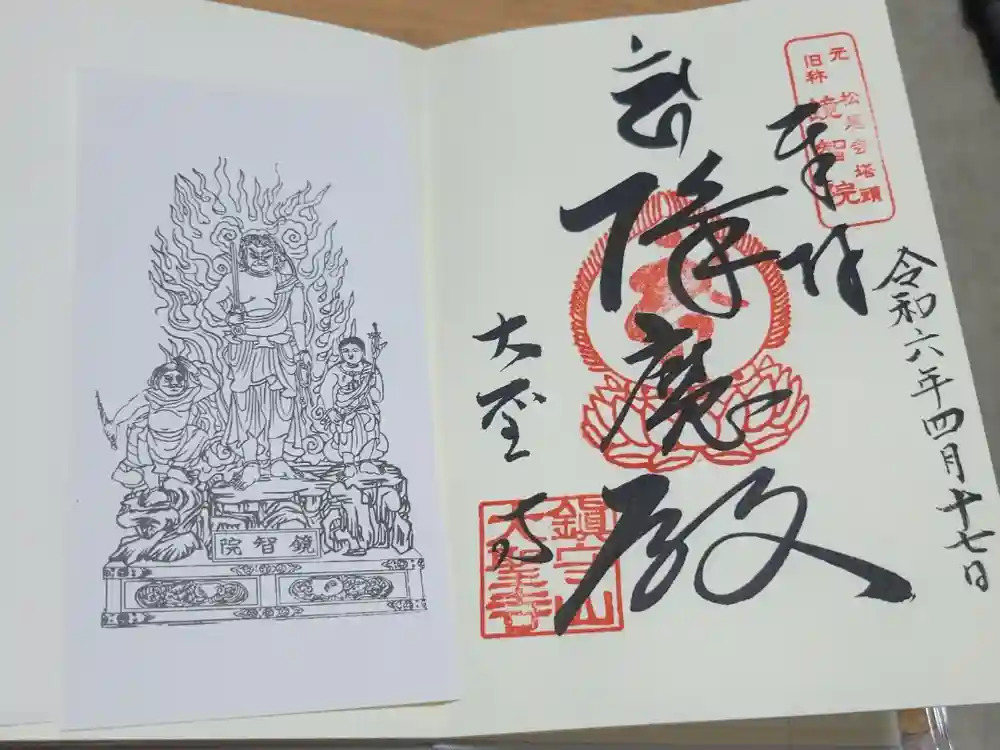 元
旧称
鏡智院
奉拝
令和六年四月十七日
降魔殿
大聖寺
鎮守山
大聖寺
鏡智院